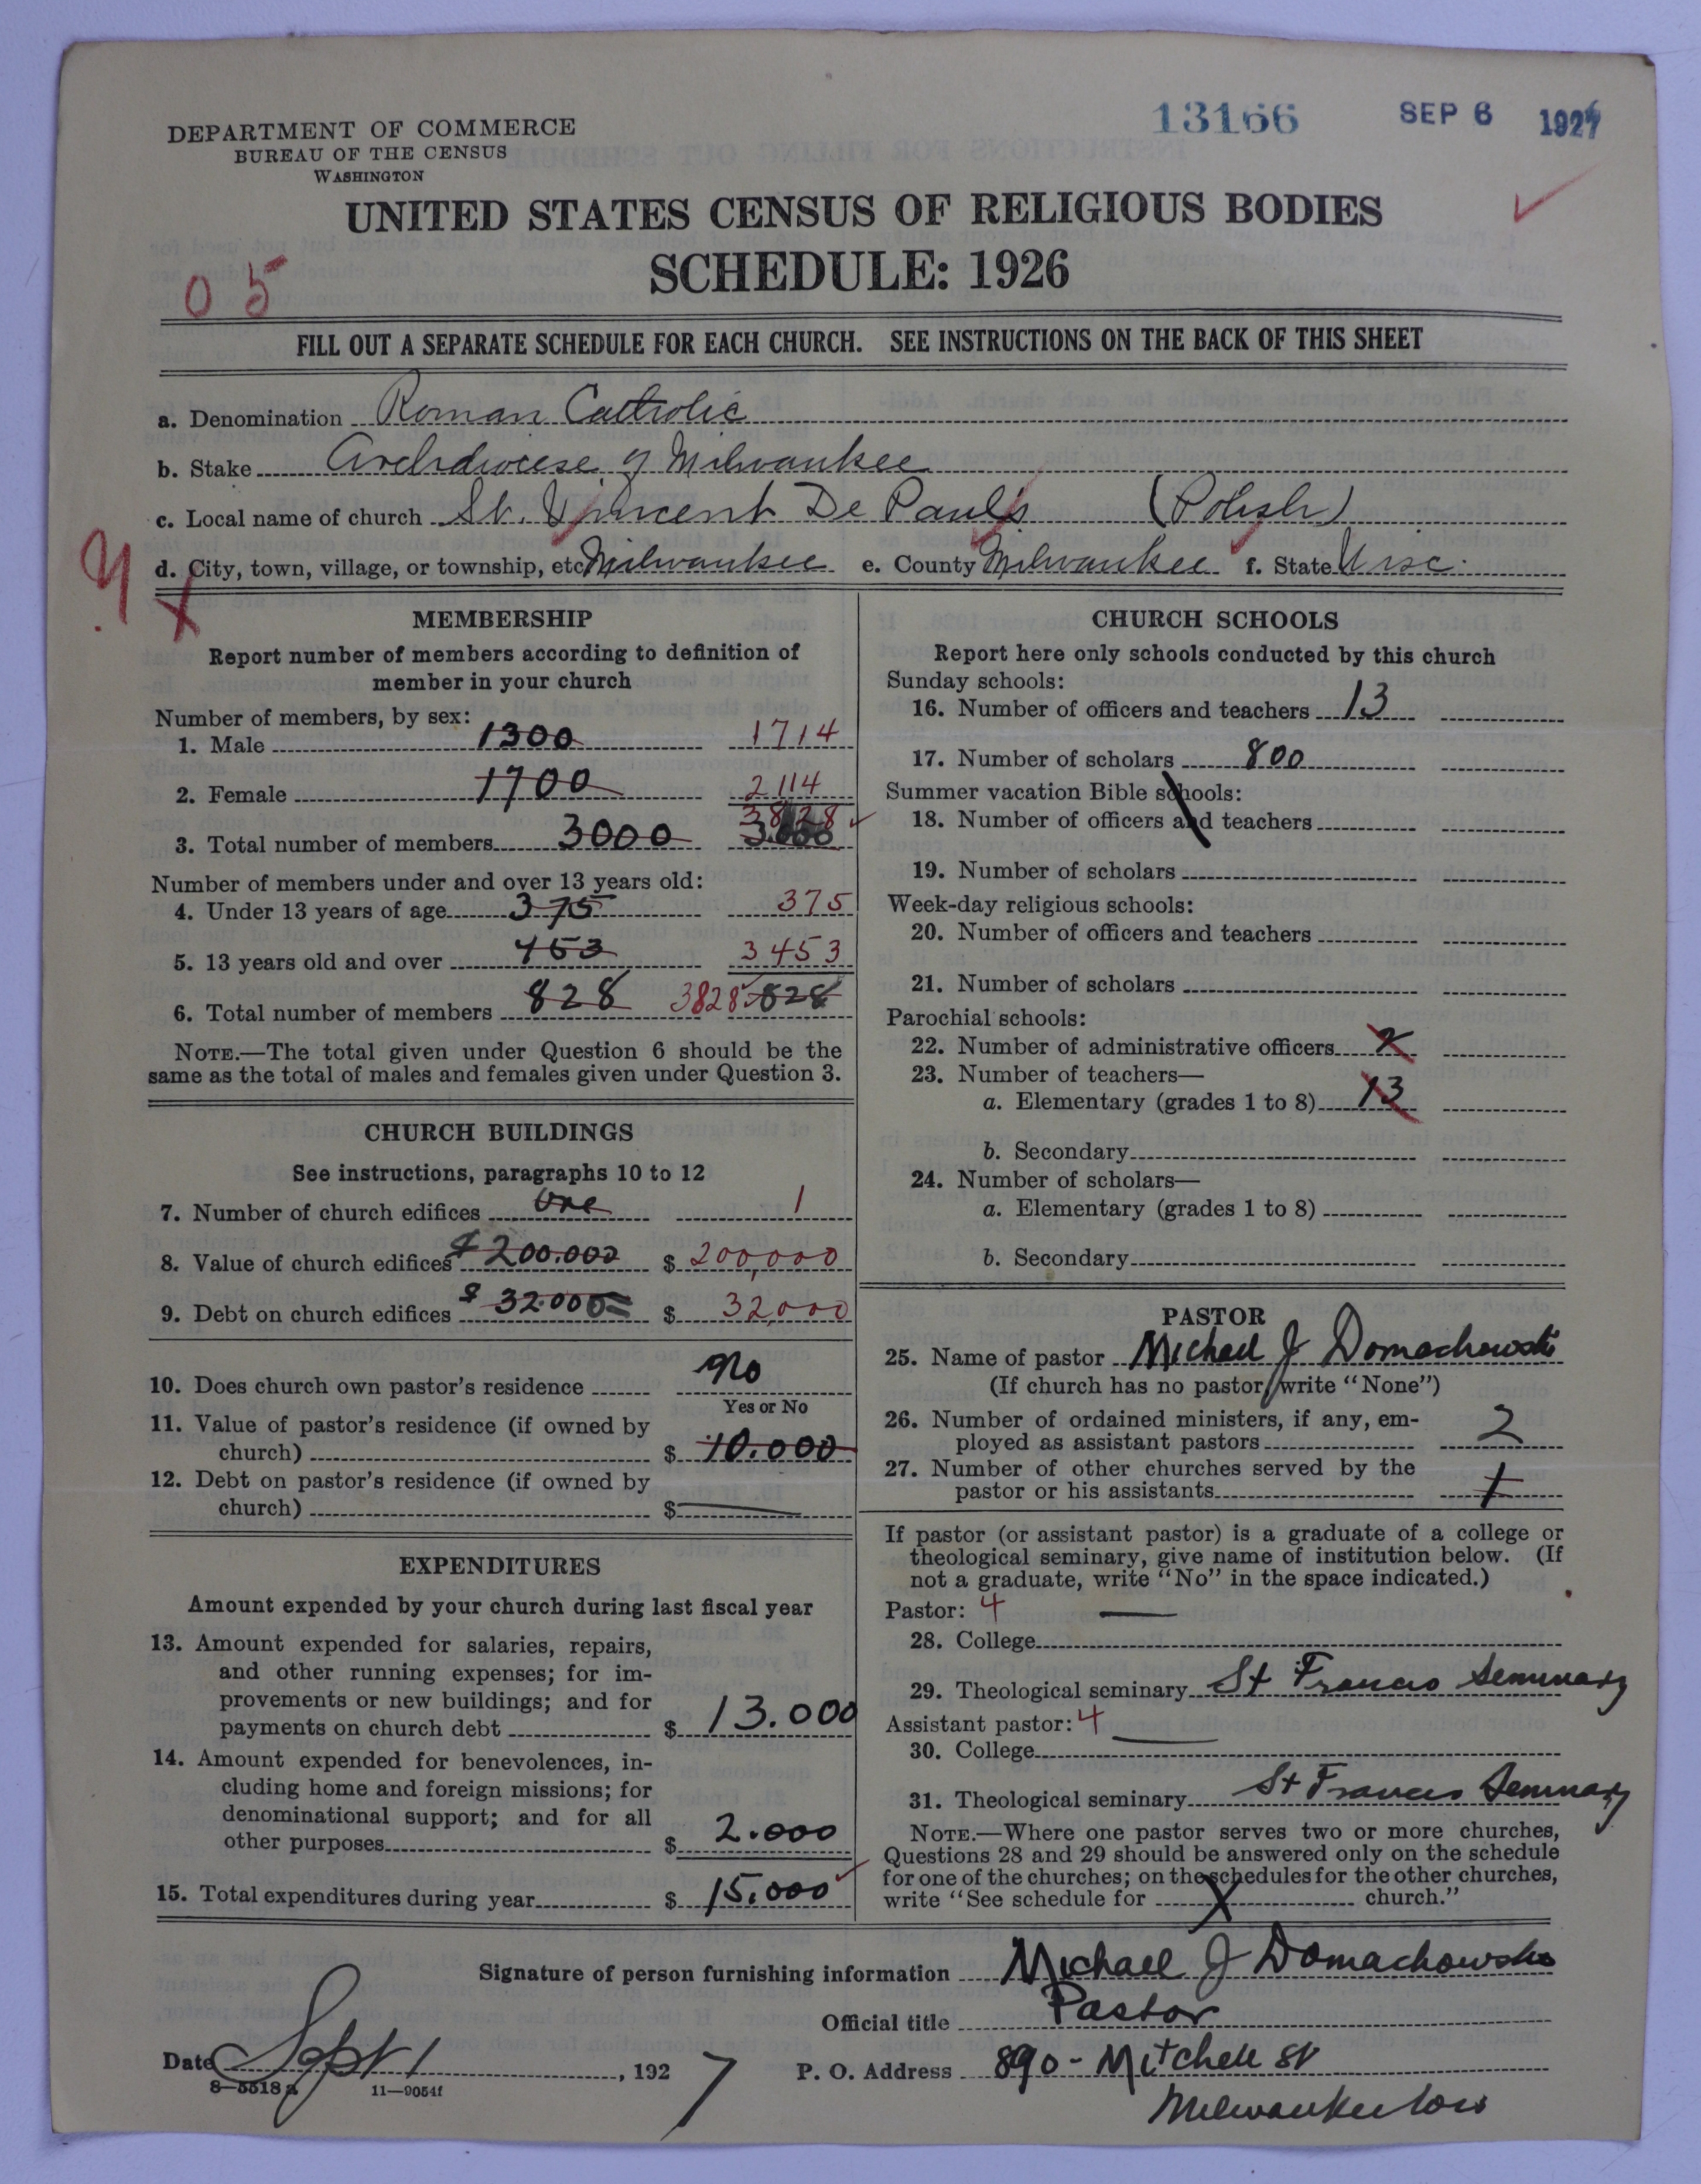 13166 SEP 6 1927
DEPARTMENT OF COMMERCE
BUREAU OF THE CENSUS
WASHINGTON
UNITED STATES CENSUS OF RELIGIOUS BODIES
SCHEDULE: 1926
05
FILL OUT A SEPARATE SCHEDULE FOR EACH CHURCH. SEE INSTRUCTIONS ON THE BACK OF THIS SHEET
a. Denomination Roman Catholic
b. Stake Archdiocese of Milwaukee
c. Local name of church St. Vincent De Paul's (Polish)
d. City, town, village, or township, etc Milwaukee e. County Milwaukee f. State Wisc.
MEMBERSHIP
Report number of members according to definition of
member in your church
Number of members, by sex:
1. Male 1300 1714
2. Female 1700 2114
3. Total number of members 3000 3828
Number of members under and over 13 years old:
4. Under 13 years of age 375 375
5. 13 years old and over 453 3453
6. Total number of members 828 3828 828
NOTE.—The total given under Question 6 should be the
same as the total of males and females given under Question 3.
CHURCH BUILDINGS
See instructions, paragraphs 10 to 12
7. Number of church edifices One 1
8. Value of church edifices $200.000 $ 200,000
9. Debt on church edifices $32.000 $ 32,000
10. Does church own pastor's residence No
Yes or No
11. Value of pastor's residence (if owned by
church) $ 10.000
12. Debt on pastor's residence (if owned by
church) $
EXPENDITURES
Amount expended by your church during last fiscal year
13. Amount expended for salaries, repairs,
and other running expenses; for im-
provements or new buildings; and for
payments on church debt $ 13.000
14. Amount expended for benevolences, in-
cluding home and foreign missions; for
denominational support; and for all
other purposes $ 2.000
15. Total expenditures during year $ 15.000
CHURCH SCHOOLS
Report here only schools conducted by this church
Sunday schools:
16. Number of officers and teachers 13
17. Number of scholars 800
Summer vacation Bible schools:
18. Number of officers and teachers
19. Number of scholars
Week-day religious schools:
20. Number of officers and teachers
21. Number of scholars
Parochial schools:
22. Number of administrative officers 2
23. Number of teachers—
a. Elementary (grades 1 to 8) 13
b. Secondary
24. Number of scholars—
a. Elementary (grades 1 to 8)
b. Secondary
PASTOR
25. Name of pastor Michael J Domachowski
(If church has no pastor, write "None")
26. Number of ordained ministers, if any, em-
ployed as assistant pastors 2
27. Number of other churches served by the
pastor or his assistants
If pastor (or assistant pastor) is a graduate of a college or
theological seminary, give name of institution below. (If
not a graduate, write "No" in the space indicated.)
Pastor: 4
28. College
29. Theological seminary St Francis Seminary
Assistant pastor: 4
30. College
31. Theological seminary St Francis Seminary
NOTE.—Where one pastor serves two or more churches,
Questions 28 and 29 should be answered only on the schedule
for one of the churches; on the schedules for the other churches,
write "See schedule for X church."
Signature of person furnishing information Michael J Domachowski
Official title Pastor
Date Sept 1, 1927 P. O. Address 890 - Mitchell St
8—5518a 11—9054f
Milwaukee Wis